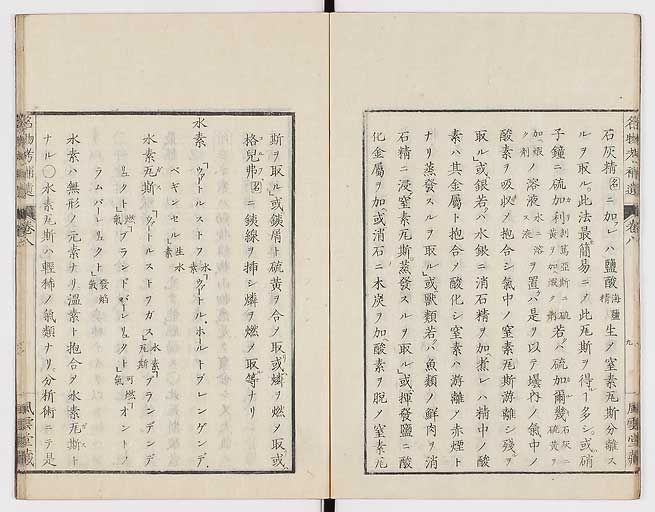 名物考補遺 卷八 九 風雲堂藏
石灰精名ニ加レハ鹽酸海鹽精生ノ窒素瓦斯分離ス
ルヲ取ル此法最簡易ニノ此瓦斯ヲ得ー多シ或硝
子鐘ニ硫加利若ハ硫加爾幾ヲ
加ノ溶液ヲ置ハ是ヲ以テ壜內ノ氣中ノ
酸素ヲ吸收ノ抱合シ氣中ノ窒素瓦斯游離シ殘ヲ
取ル或銀若ハ水銀ニ消石精ヲ加煮レハ精中ノ酸
素ハ其金屬ト抱合ノ酸化シ窒素ハ游離ノ赤烟ト
ナリ蒸發スルヲ取ル或獸類若ハ魚類ノ鮮肉ヲ消
石精ニ浸窒素瓦斯蒸發スルヲ取ル或揮發鹽ニ酸
化金屬ヲ加或消石ニ木炭ヲ加酸素ヲ脫ノ窒素瓦
斯ヲ取ル或鐵屑ト硫黃ヲ合ノ取或燐ヲ燃ノ取或
格兒弗名ニ鐵線ヲ挿シ燐ヲ燃ノ取等ナリ
水素 「ワートルストフ水素「ワートル、ホールトブレンゲンデ、
ベギンセル生水素
水素瓦斯 「ワートルストフガス水素瓦斯「ブランデンデ
リュクト燃氣「ブランドバーレリュクト可燃氣「オントフ
ラムバーレリュクト發焰氣
水素ハ無形ノ元素ナリ溫素ト抱合ヲ水素瓦斯ト
ナル〇水素瓦斯ハ輕稀ノ氣類ナリ分析術ニテ是
名物考補遺 卷八 風雲堂藏